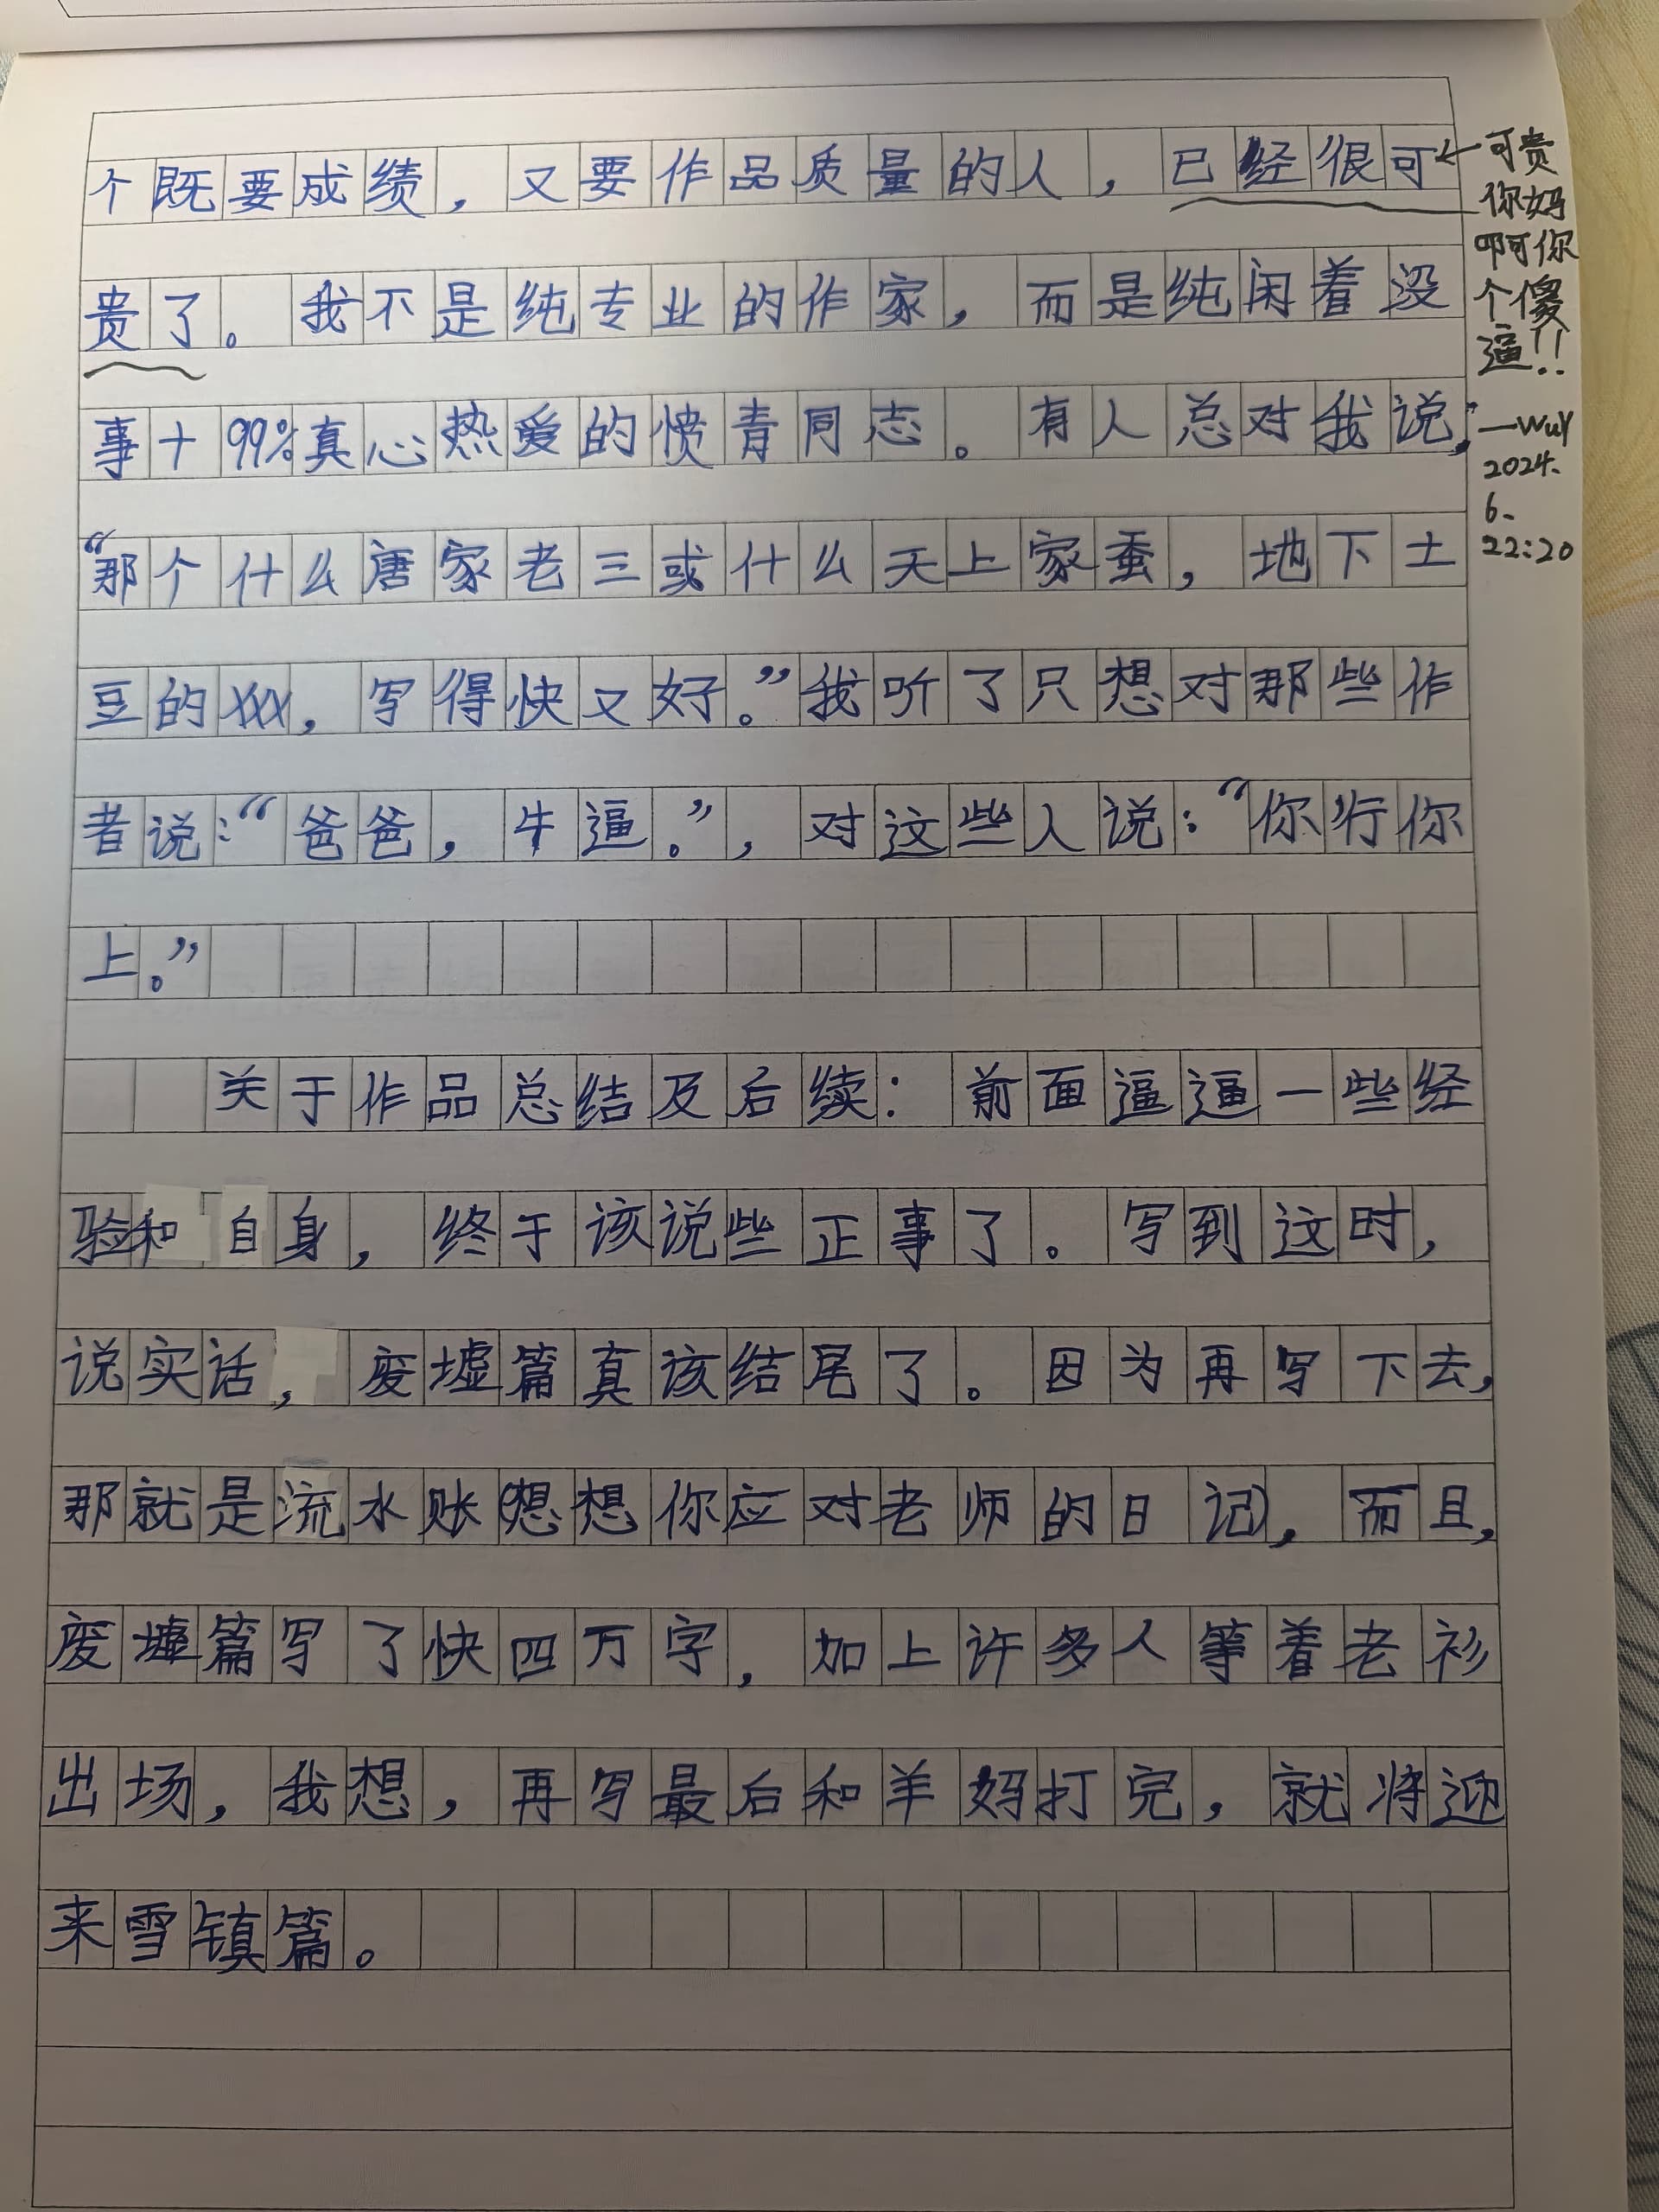 个既要成绩，又要作品质量的人，已经很可
贵了。我不是纯专业的作家，而是纯闲着没
事十99%真心热爱的愤青同志。有人总对我说：
“那个什么唐家老三或什么天上家蚕，地下土
豆的XXX，写得快又好。”我听了只想对那些作
者说：“爸爸，牛逼。”，对这些人说：“你行你
上。”
关于作品总结及后续：前面逼逼一些经
验和自身，终于该说些正事了。写到这时，
说实话，废墟篇真该结尾了。因为再写下去，
那就是流水账(想想你应对老师的日记)，而且，
废墟篇写了快四万字，加上许多人等着老衫
出场，我想，再写最后和羊妈打完，就将迎
来雪镇篇。
可贵
你妈
啊你
个傻
逼!!
—WuY
2024.
6、
22:20